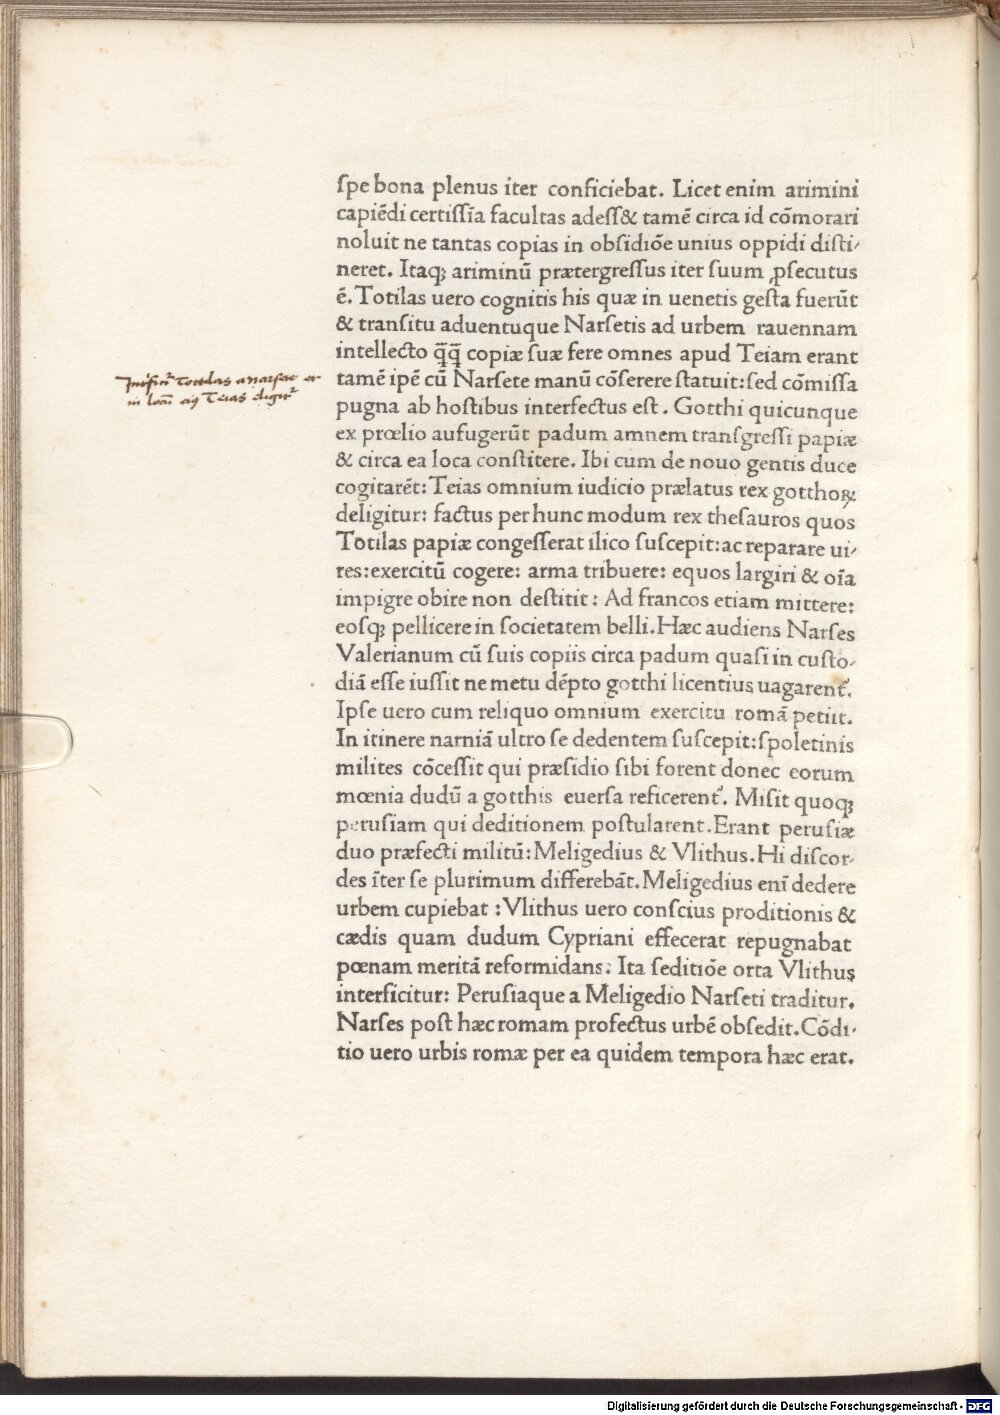 Interficitꝰ Tottilas a narsete et
in locū eiꝯ Teias eligitꝰ
ſpe bona plenus iter conficiebat. Licet enim arimini
capiēdi certiſſīa facultas adeſſ& tamē circa id cōmorari
noluit ne tantas copias in obſidiōe unius oppidi diſti⸗
neret. Itaqꝫ ariminū prætergreſſus iter ſuum ꝓſecutus
ē. Totilas uero cognitis his quæ in uenetis geſta fuerūt
& tranſitu aduentuque Narſetis ad urbem rauennam
intellecto q̄q̄ copiæ ſuæ fere omnes apud Teiam erant
tamē ipē cū Narſete manū cōſerere ſtatuit: ſed cōmiſſa
pugna ab hoſtibus interfectus eſt. Gotthi quicunque
ex prœlio aufugerūt padum amnem tranſgreſſi papiæ
& circa ea loca conſtitere. Ibi cum de nouo gentis duce
cogitarēt: Teias omnium iudicio prælatus rex gotthoꝝ
deligitur: factus per hunc modum rex theſauros quos
Totilas papiæ congeſſerat ilico ſuſcepit: ac reparare ui⸗
res: exercitū cogere: arma tribuere: equos largiri & oīa
impigre obire non deſtitit: Ad francos etiam mittere:
eoſqꝫ pellicere in ſocietatem belli. Hæc audiens Narſes
Valerianum cū ſuis copiis circa padum quaſi in cuſto⸗
diā eſſe iuſſit ne metu dēpto gotthi licentius uagarentꝰ.
Ipſe uero cum reliquo omnium exercitu romā petiit.
In itinere narniā ultro ſe dedentem ſuſcepit: ſpoletinis
milites cōceſſit qui præſidio ſibi forent donec eorum
mœnia dudū a gotthis euerſa reficerentꝰ. Miſit quoqꝫ
peruſiam qui deditionem poſtularent. Erant peruſiæ
duo præfecti militū: Meligedius & Vlithus. Hi diſcor⸗
des īter ſe plurimum differebāt. Meligedius enī dedere
urbem cupiebat: Vlithus uero conſcius proditionis &
cædis quam dudum Cypriani effecerat repugnabat
pœnam meritā reformidans: Ita ſeditiōe orta Vlithus
interficitur: Peruſiaque a Meligedio Narſeti traditur.
Narſes poſt hæc romam profectus urbē obſedit. Cōdi⸗
tio uero urbis romæ per ea quidem tempora hæc erat.
Digitalisierung gefördert durch die Deutsche Forschungsgemeinschaft - DFG